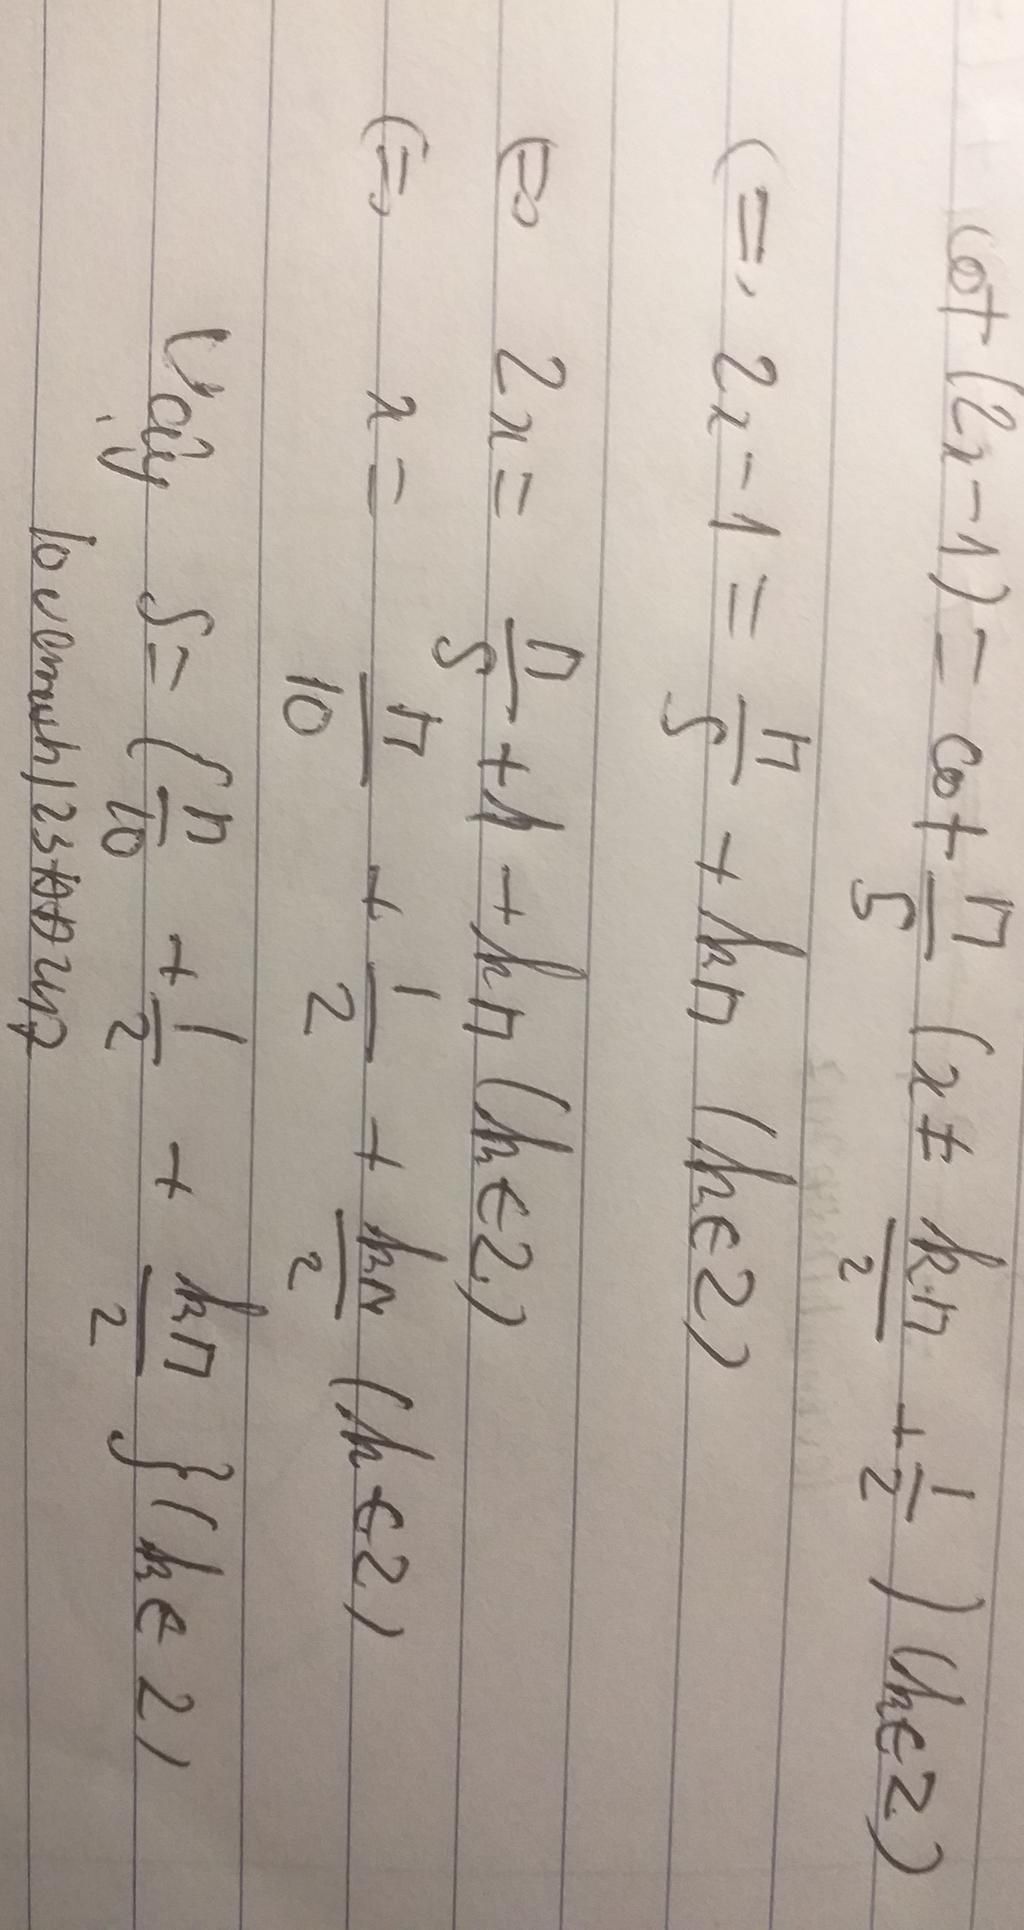 cot (2x-1) = cot π/5 (x ≠ kπ/2 + 1/2) (k∈Z)
(=, 2x-1 = π/5 + kπ (k∈Z)
(=) 2x = π/5 + 1 + kπ (k∈Z)
(=, x = π/10 + 1/2 + kπ/2 (k∈Z)
Vậy S = {π/10 + 1/2 + kπ/2} (k∈Z)